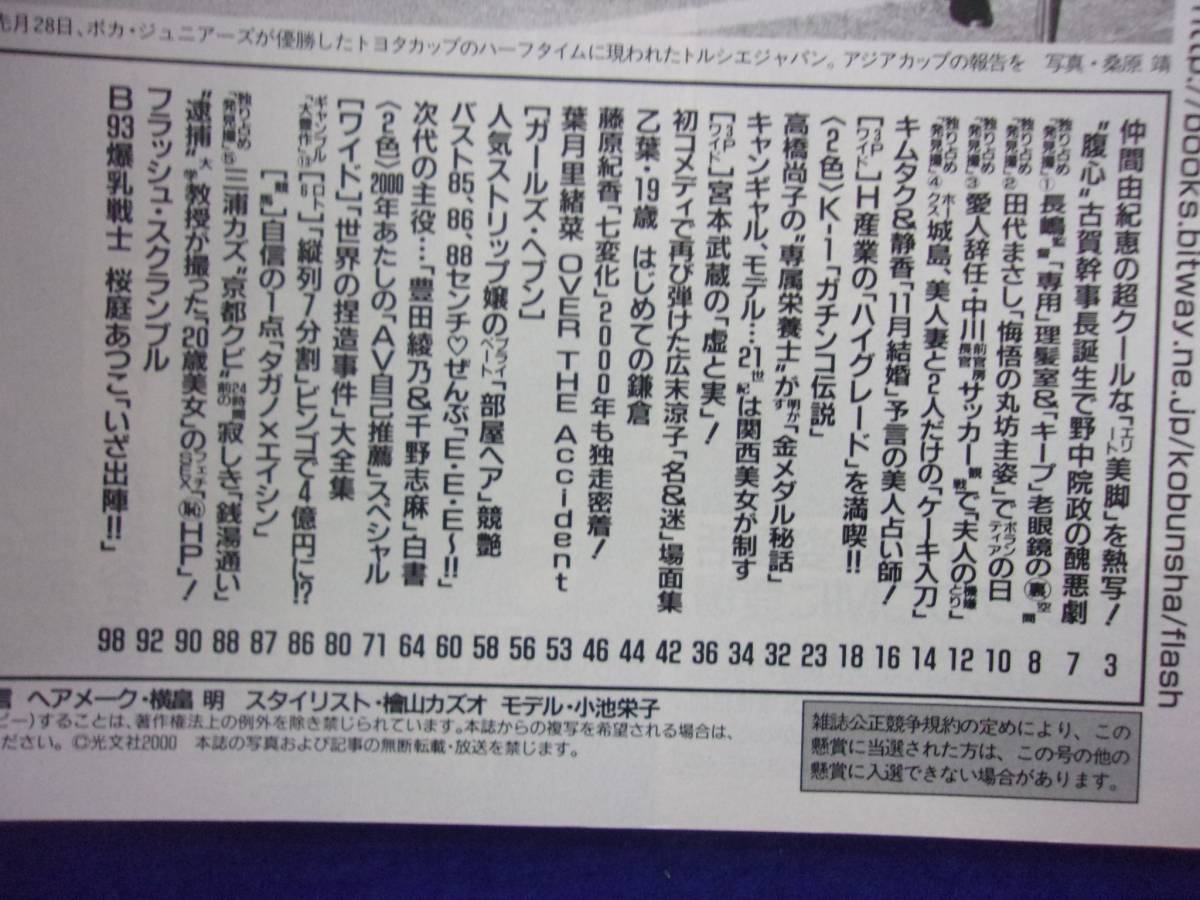 先月28日、ボカ・ジュニアーズが優勝したトヨタカップのハーフタイムに現われたトルシエジャパン。アジアカップの報告を 写真・桑原 靖
http://books.bitway.ne.jp/kobunsha/flash
仲間由紀恵の超クールな「美脚」を熱写! 3
"腹心"古賀幹事長誕生で野中院政の醜悪劇 7
独り占め「発見撮」① 長嶋監督「専用」理髪室&「キープ」老眼鏡の㊙空間 8
独り占め「発見撮」② 田代まさし「悔悟の丸坊主姿」でボランティアの日 10
独り占め「発見撮」③ 愛人辞任・中川前官房長官サッカー観戦で「夫人の機嫌とり」 12
独り占め「発見撮」④ ホークス城島、美人妻と2人だけの「ケーキ入刀」 14
キムタク&静香「11月結婚」予言の美人占い師! 16
[3Pワイド]H産業の「ハイグレード」を満喫!! 18
〈2色〉K-1「ガチンコ伝説」 23
高橋尚子の"専属栄養士"が明かす「金メダル秘話」 32
キャンギャル、モデル…21世紀は関西美女が制す 34
[3Pワイド]宮本武蔵の「虚と実」! 36
初コメディで再び弾けた広末涼子「名&迷」場面集 42
乙葉・19歳 はじめての鎌倉 44
藤原紀香「七変化」2000年も独走密着! 46
葉月里緒菜 OVER THE Accident 53
[ガールズ・ヘブン] 56
人気ストリップ嬢のプライベート「部屋ヘア」競艶 58
バスト85、86、88センチ♡ぜんぶ「E・E・E〜!!」 60
次代の主役…「豊田綾乃&千野志麻」白書 64
〈2色〉2000年あたしの「AV自己推薦」スペシャル 71
[ワイド]「世界の捏造事件」大全集 80
ギャンブル「大豊作」⑬ [ロト6]「縦列7分割」ビンゴで4億円に!? 86
[競馬]自信の1点「タガノ×エイシン」 87
独り占め「発見撮」⑤ 三浦カズ、"京都クビ"24時間前の寂しき「銭湯通い」 88
"逮捕"大学教授が撮った「20歳美女」のSEX「恥」HP! 90
フラッシュ・スクランブル 92
B93爆乳戦士 桜庭あつこ「いざ出陣!!」 98
ヘアメーク・横畠 明 スタイリスト・檜山カズオ モデル・小池栄子
ピー)することは、著作権法上の例外を除き禁じられています。本誌からの複写を希望される場合は、
ださい。©光文社2000 本誌の写真および記事の無断転載・放送を禁じます。
雑誌公正競争規約の定めにより、この
懸賞に当選された方は、この号の他の
懸賞に入選できない場合があります。